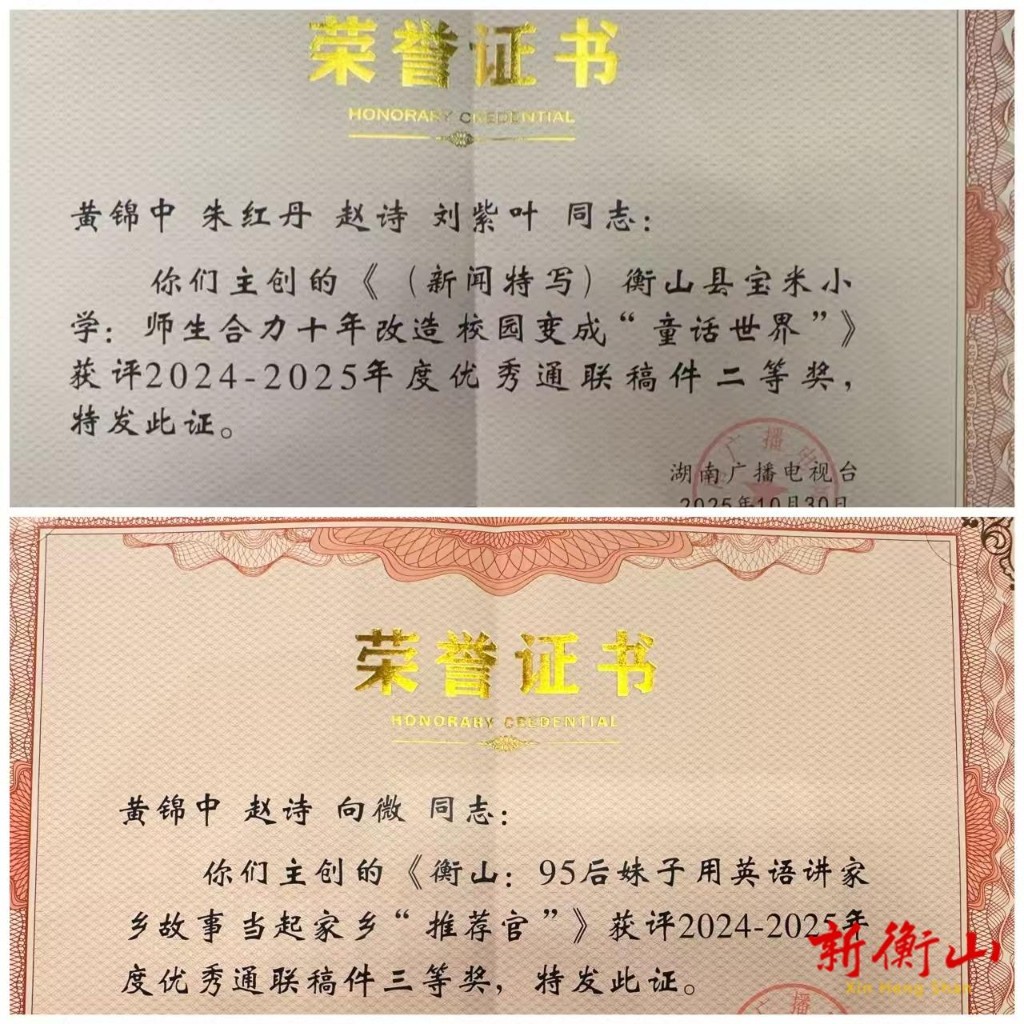 荣誉证书
HONORARY CREDENTIAL
黄锦中 朱红丹 赵诗 刘紫叶 同志：
你们主创的《（新闻特写）衡山县宝米小
学：师生合力十年改造 校园变成“童话世界”》
获评2024-2025年度优秀通联稿件二等奖，
特发此证。
广播电
湖南广播电视台
2025年10月30日
荣誉证书
HONORARY CREDENTIAL
黄锦中 赵诗 向微 同志：
你们主创的《衡山：95后妹子用英语讲家
乡故事 当起家乡“推荐官”》获评2024-2025年
度优秀通联稿件三等奖，特发此证。
广播
新衡山
Xin Heng Shan